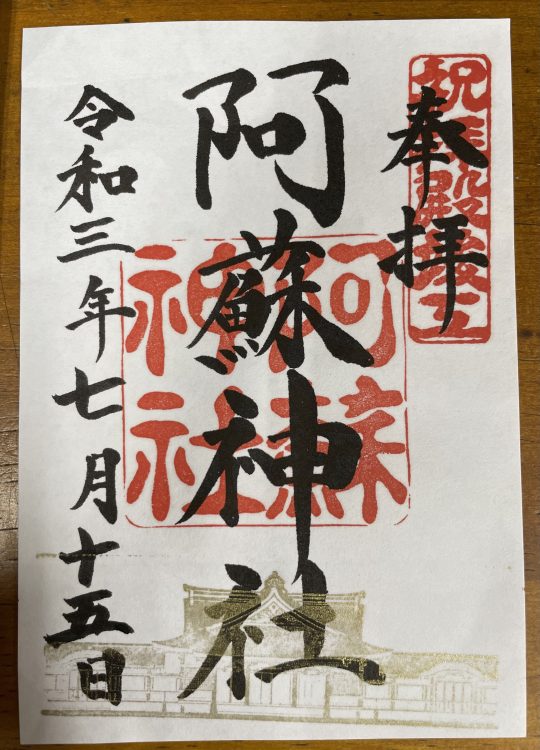 奉拝
祝拝殿竣工
阿蘇神社
阿蘇神社
令和三年七月十五日